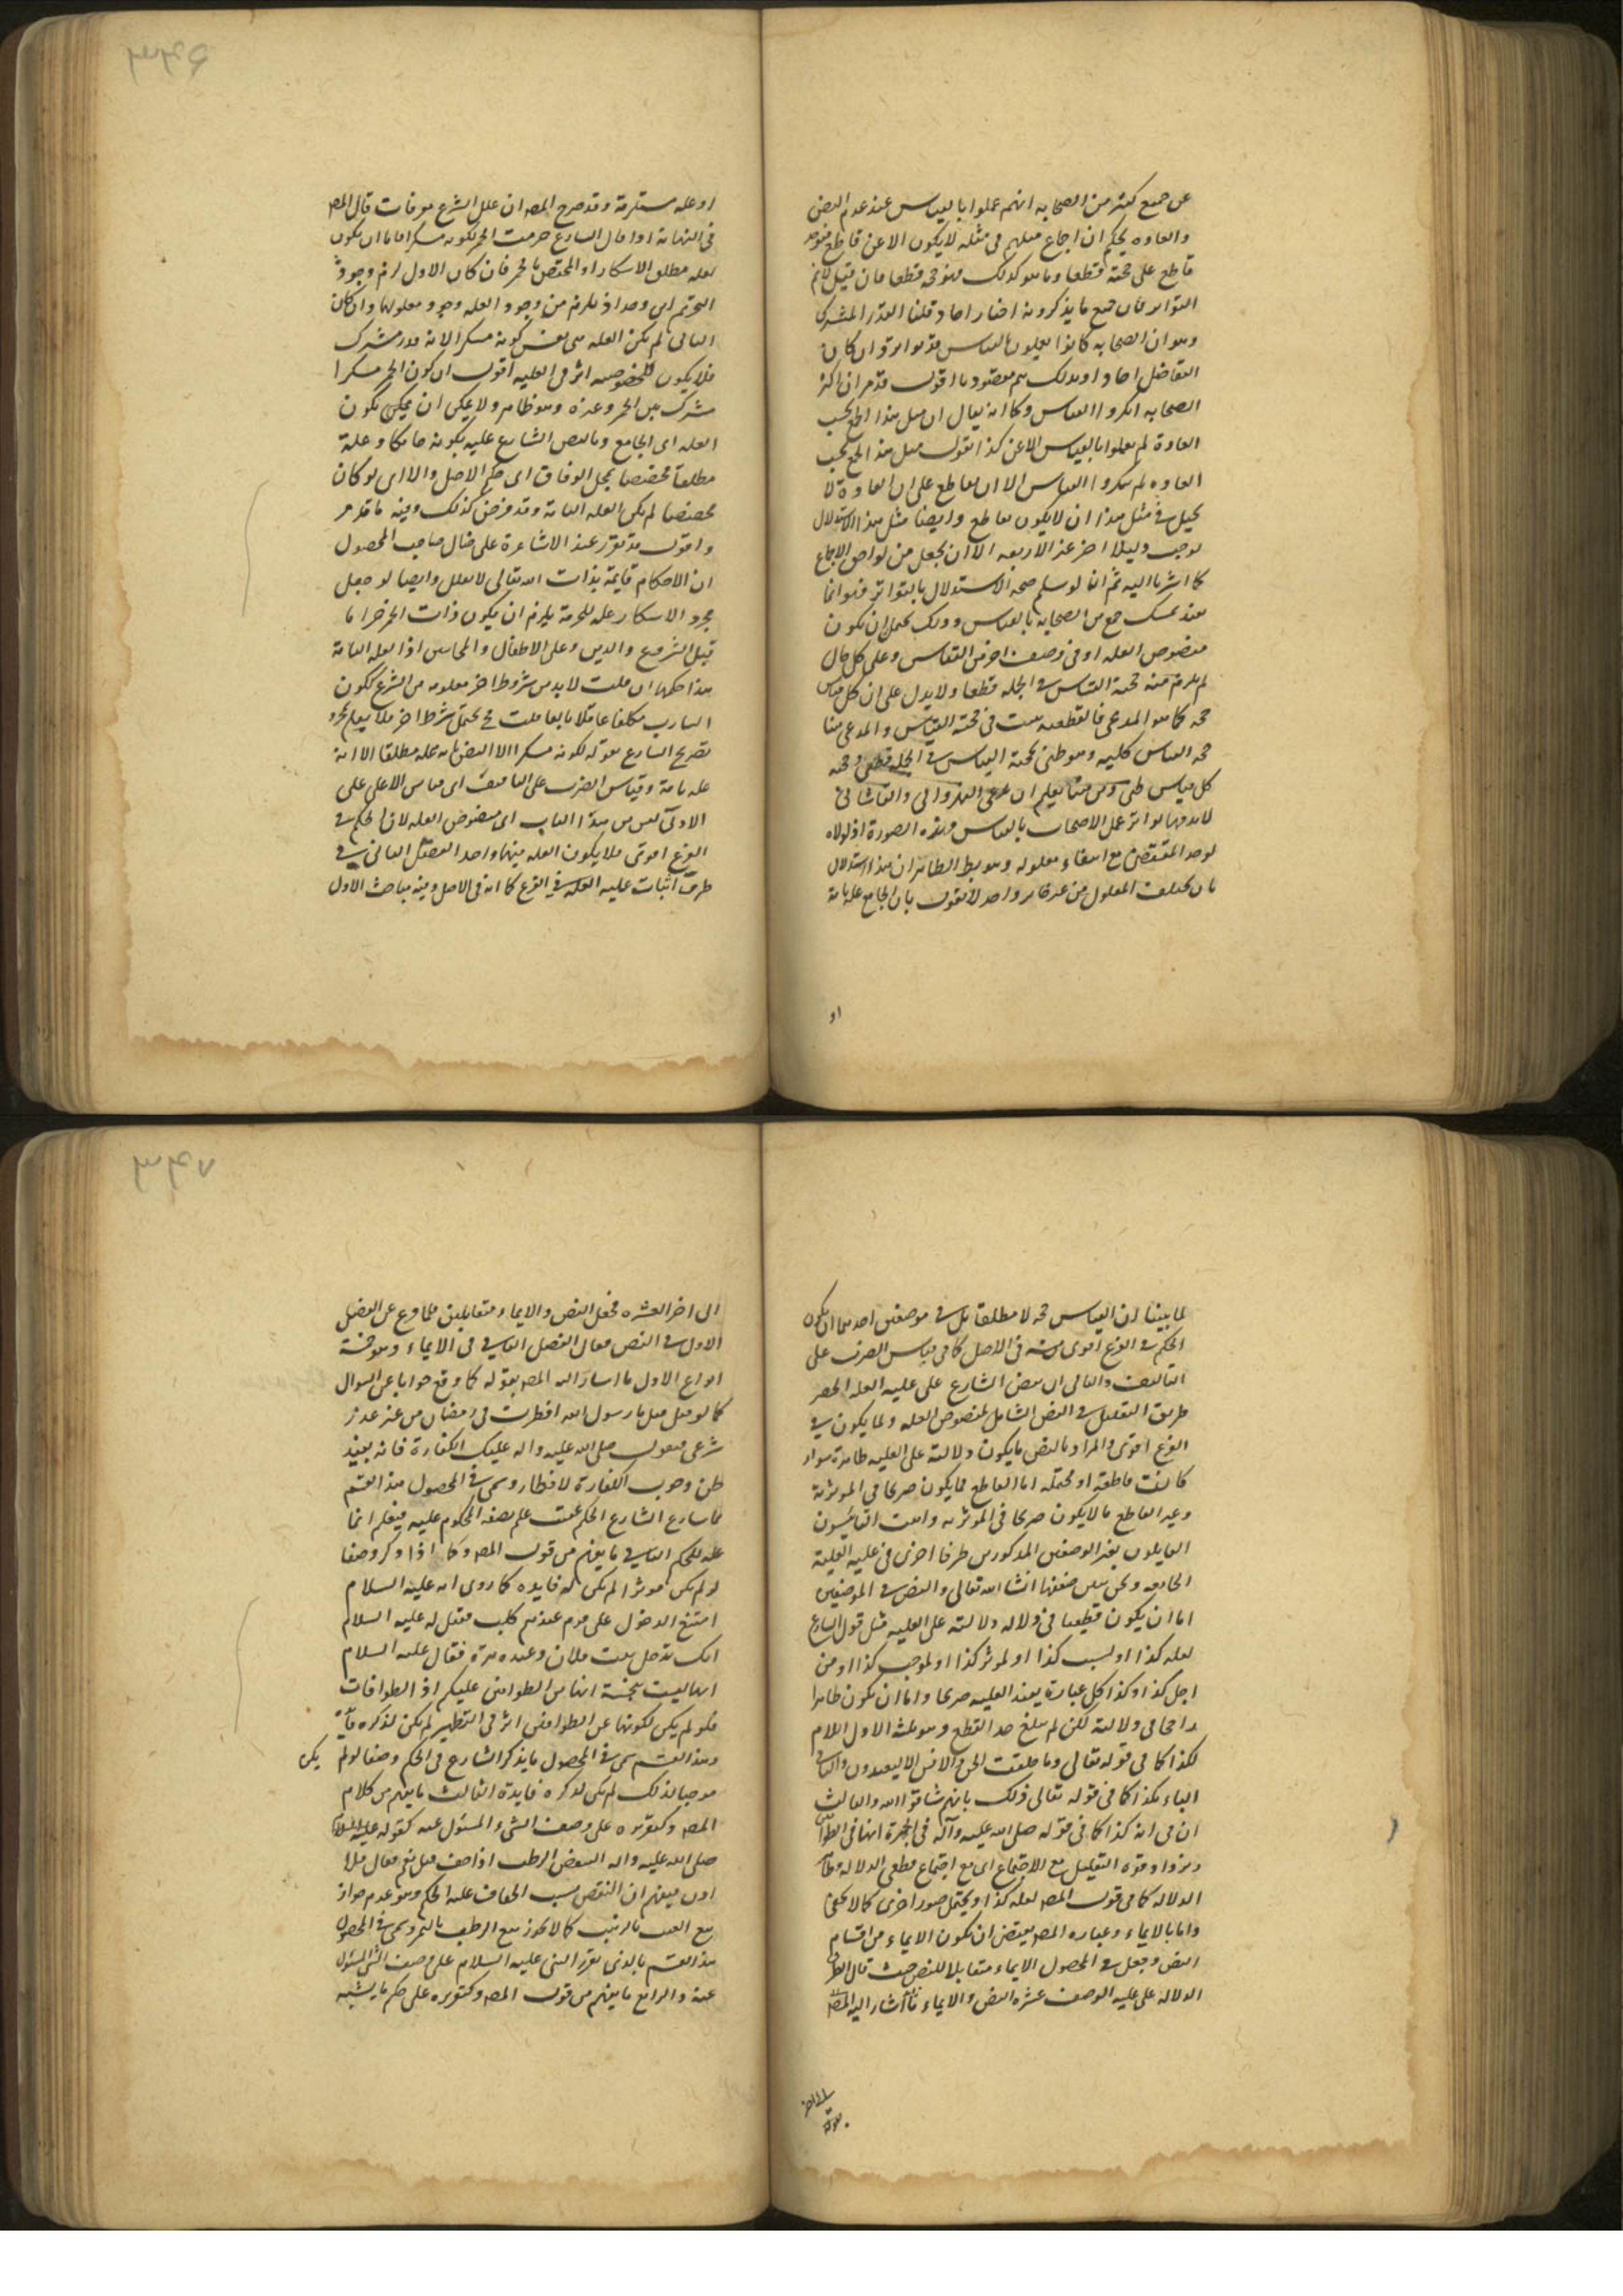 عن جميع كثير من الصحابه انهم عملوا بالقياس عند عدم النص
والعاده يحكم ان اجماع مثلهم فى مثله لا يكون الا عن قاطع فيوجد
قاطع على حجته قطعا وما هو كذلك فهو حجه قطعا فان قيل لا نم
التواتر فان جميع ما يذكرونه اخبار احاد قلنا القدر المشترك
وهو ان الصحابه كانوا يعملون بالقياس قد تواتر وان كان
التفاضل احاد او ذلك هم مقصودنا اقول قد مر ان اكثر
الصحابه انكروا القياس وكما انه يقال ان مثل هذا الجمع بحسب
العادة لم يعملوا بالقياس الا عن كذا نقول مثل هذا الجمع بحسب
العاده لم ينكروا القياس الا ان لقاطع على ان العادة لا
يحيل فى مثل هذا ان لا يكون لقاطع وايضا مثل هذا الاستدلال
يوجب دليلا اخر غير الاربعه الا ان يجعل من لواحق الاجماع
كما اشرنا اليه ثم انا لو سلم صحه الاستدلال بالتواتر فهو انما
يفيد تمسك جمع من الصحابه بالقياس وذلك يحتمل ان يكون
منصوص العله او فى وصف اخر من القياس وعلى كل حال
لم يلزم منه حجية القياس فى الجمله قطعا ولا يدل على ان كل قياس
حجه كما هو المدعى فالقطعيه ثبت فى حجية القياس والمدعى هنا
حجه القياس كليه وهو ظنى لحجية القياس فى الجمله قطعى وحجه
كل قياس ظنى ومن هنا يعلم ان
لا بد فيها تواتر عمل الاصحاب بالقياس وهذه الصورة اذ لولاه
لوجد المقتضى مع انتفاء معلوله وهو بط الظاهر ان هذا استدلال
بان تخلف المعلول من غير ظاهر واحد لا نقول بان الجامع عله تامة
او
او عله مستلزمة وقد صرح المصه ان علل الشرع معرفات قال المصه
فى النهاية اذا قال الشارع حرمت الخمر لكونه مسكرا فاما ان يكون
لعله مطلق الاسكار او المختص بالخمر فان كان الاول لزم وجود
التحريم اين وجد اذ يلزم من وجود العله وجود معلولها وان كان
الثانى لم يكن العله هى نفس كونه مسكرا لانه قدر مشترك
فلا يكون للخصوصيه اثر فى العليه اقول ان كون الخمر مسكرا
مشترك بين الخمر وغيره وهو ظاهر ولا يمكن ان يمكن يكون
العله اى الجامع وبالنص الشارع عليه بكونه جامعا وعلة
مطلقا مختصا بمحل الوفاق اى حكم الاصل والا اى لو كان
مختصا لم يكن العله التامة وقد فرض كذلك وفيه ما قد مر
واقول قد تقرر عند الاشاعرة على ما قال صاحب المحصول
ان الاحكام قايمة بذات الله تعالى لا تعلل وايضا لو جعل
مجرد الاسكار عله للحرمة يلزم ان يكون ذات الخمر حراما
قبل الشروع والدين وعلى الاطفال والمجانين اذ العله التامة
هذا حكمها ان قلت لا بد من شروط اخر معلومه من الشرع ككون
الشارب مكلفا عاقلا بالغا قلت فح يحتمل شرط اخر فلا يعلم بمجرد
تصريح الشارع بقوله لكونه مسكرا الا النص بانه عله مطلقا الا انه
عله تامة وقياس الضرب على التافيف اى قياس الاعلى على
الادنى ليس من هذا الباب اى منصوص العله لان الحكم فى
الفرع اقوى فلا يكون العله فيهما واحد الفصل الثانى فى
طرق اثبات عليه العله فى الفرع كما انه فى الاصل وفيه مباحث الاول
لما بينا ان القياس حجه لا مطلقا بل فى موضعين احدهما ان يكون
الحكم فى الفرع اقوى منه فى الاصل كما فى قياس الضرب على
التافيف والثانى ان ينص الشارع على عليه العله انحصر
طريق التعليل فى النص الشامل لمنصوص العله ولما يكون فى
الفرع اقوى والمراد بالنص ما يكون دلالته على العليه ظاهرة سواء
كانت قاطعه او محتمله اما القاطع فما يكون صريحا فى الموثرية
وغير القاطع ما لا يكون صريحا فى الموثريه واثبت القايسون
القايلون بغير الوصفين المذكورين طرقا اخرى فى عليه العلية
الجامعه ونحن نبين ضعفها انشا الله تعالى والنص فى الموضعين
اما ان يكون قطعيا فى دلاله دلالته على العليه مثل قول الشارع
لعله كذا او لسبب كذا او لموثر كذا او لموجب كذا او من
اجل كذا وكذا كل عبارة يفيد العليه صريحا واما ان يكون ظاهرا
راجحا فى دلالته لكن لم يبلغ حد القطع وهو ثلثة الاول اللام
لكذا كما فى قوله تعالى وما خلقت الجن والانس الا ليعبدون والثانى
الباء بكذا كما فى قوله تعالى ذلك بانهم شاقوا الله والثالث
ان فى انه كذا كما فى قوله صلى الله عليه وآله فى الهرة انها فى الطوا
الدلاله كما فى قول المصه لعله كذا ويحتمل صور اخرى كما لا يخفى
واما بالايماء وعباره المصه يقتضى ان يكون الايماء من اقسام
النص وجعل فى المحصول الايماء متقابلا للنص حيث قال الطرق
الداله على عليه الوصف عشره النص والايماء فاشار اليه المصه
الى اخر العشره فجعل النص والايماء متقابلين فلما فرغ عن الفصل
الاول فى النص فقال الفصل الثانى فى الايماء وهو خمسة
انواع الاول ما اشار اليه المصه بقوله كما وقع جوابا عن السوال
كما لو قيل مثل يا رسول الله افطرت فى رمضان من غير عذر
شرعى فيقول صلى الله عليه واله عليك الكفارة فانه يفيد
ظن وجوب الكفارة للافطار وسمى فى المحصول هذا القسم
مما شارع الشارع الحكم عقيب علم بصفه المحكوم عليه فيعلم انها
عله للحكم الثانى ما يفهم من قول المصه وكما اذا ذكر وصفا
لو لم يكن موثرا لم يكن له فايده كما روى انه عليه السلام
امتنع الدخول على قوم عندهم كلب فقيل له عليه السلام
انك تدخل بيت فلان وعنده هرة فقال عليه السلام
انها ليست بنجسة انها من الطوافين عليكم او الطوافات
فلو لم يكن لكونها من الطوافين اثر فى التطهير لم يكن لذكره فايدة
وهذا القسم سمى فى المحصول ما يذكر الشارع فى الحكم وصفا لو لم يكن
موجبا لذلك لم يكن لذكره فايدة الثالث ما يفهم من كلام
المصه وكتقريره على وصف الشىء المسئول عنه كقوله عليه السلام
صلى الله عليه واله اينقص الرطب اذا جف قيل نعم فقال فلا
اذن فيفهم ان النقص بسبب الجفاف عله الحكم وهو عدم جواز
بيع العنب بالزبيب كما لا يجوز بيع الرطب بالتمر وسمى فى المحصول
هذا القسم بالذى يقرر النبى عليه السلام على وصف الشى المسئول
عنه والرابع ما يفهم من قول المصه وكتقريره على حكم ما يشبه